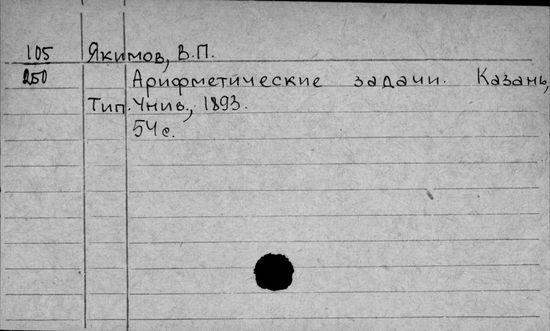 105 Якимов, В.П.
250 Арифметические задачи. Казань,
Тип. Унив., 1893.
54 с.